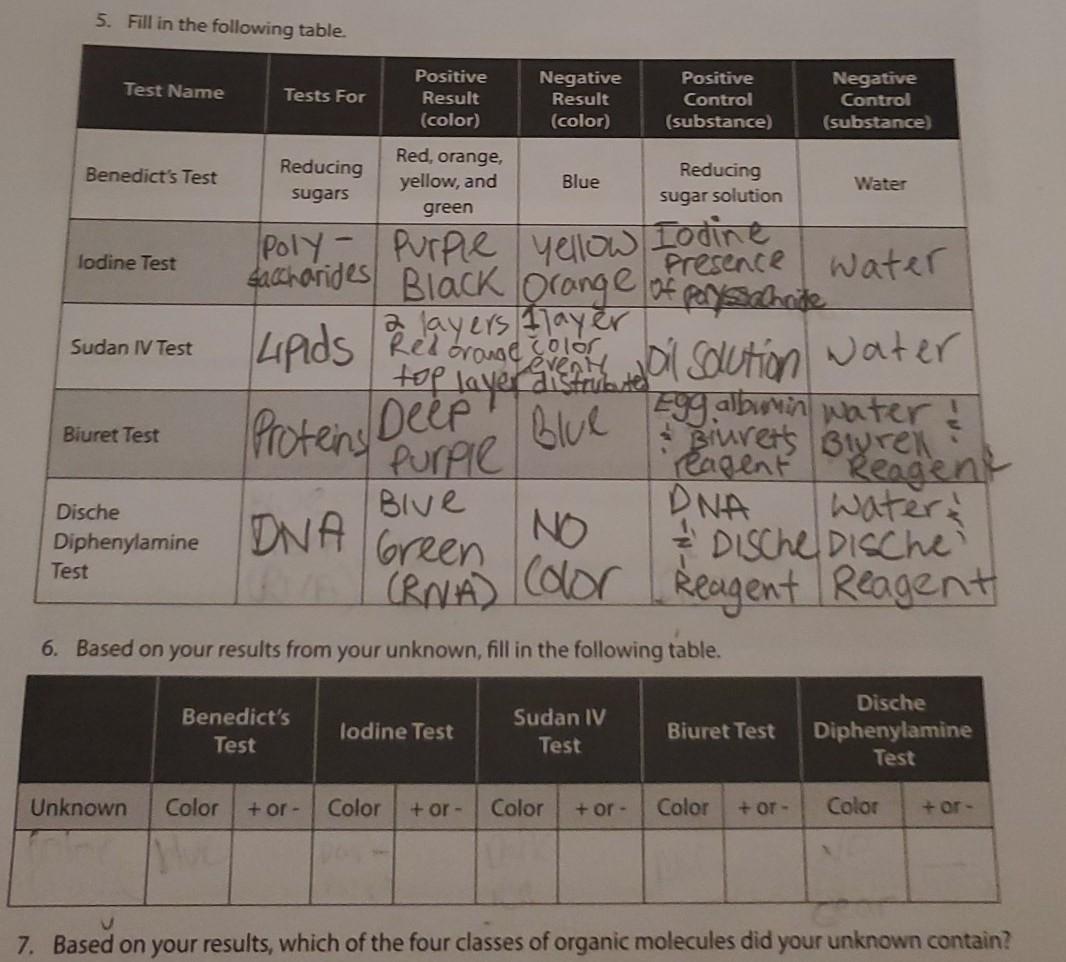 5. Fill in the following table.
Test Name
Tests For
Positive
Result
(color)
Negative
Result
(color)
Positive
Control
(substance)
Negative
Control
(substance)
Benedict's Test
Reducing
sugars
Red, orange,
yellow, and
green
Blue
Reducing
sugar solution
Water
Iodine Test
Poly-
saccharides
Purple
Black
Yellow
Orange
Iodine
Presence
of
Water
Sudan IV Test
Lipids
2 layers
Red orange
top layer
1 layer
color
evenly
distributed
Oil solution
Water
Biuret Test
Proteins
Deep
Purple
Blue
Egg albumin
& Biurets
reagent
Water &
Reagent
Dische
Diphenylamine
Test
DNA
Blue
Green
(RNA)
NO
Color
DNA
& Dische
Reagent
Water &
Dische
Reagent
6. Based on your results from your unknown, fill in the following table.
Benedict's
Test
Iodine Test
Sudan IV
Test
Biuret Test
Dische
Diphenylamine
Test
Unknown
Color
+ or -
Color
+ or -
Color
+ or -
Color
+ or -
Color
+ or -
blue
7. Based on your results, which of the four classes of organic molecules did your unknown contain?